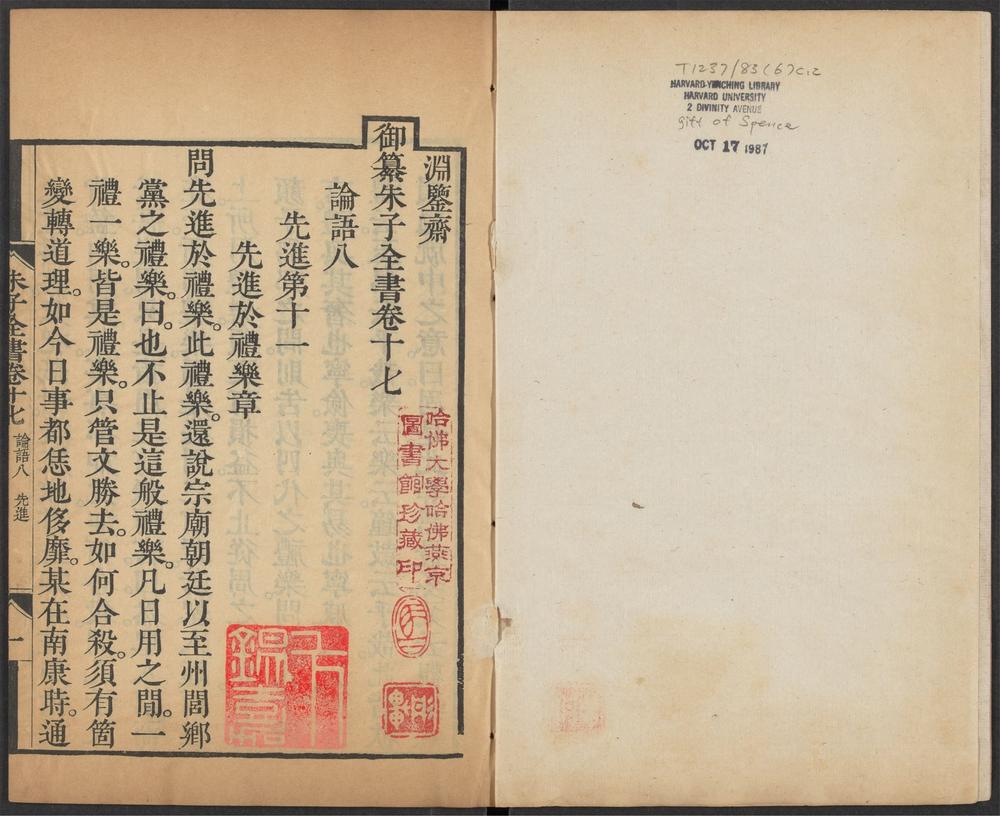 T1237/83(6)c.2
HARVARD-YENCHING LIBRARY
HARVARD UNIVERSITY
2 DIVINITY AVENUE
gift of Spence
OCT 17 1987
淵鑒齋
御纂朱子全書卷十七
論語八
先進第十一
先進於禮樂章
問先進於禮樂。此禮樂。還說宗廟朝廷以至州閭鄉
黨之禮樂。曰。也不止是這般禮樂。凡日用之間。一
禮一樂。皆是禮樂。只管文勝去。如何合殺。須有箇
變轉道理。如今日事都恁地侈靡。某在南康時。通
朱子全書卷十七 論語八 先進 一
哈佛大學哈佛燕京
圖書館珍藏印